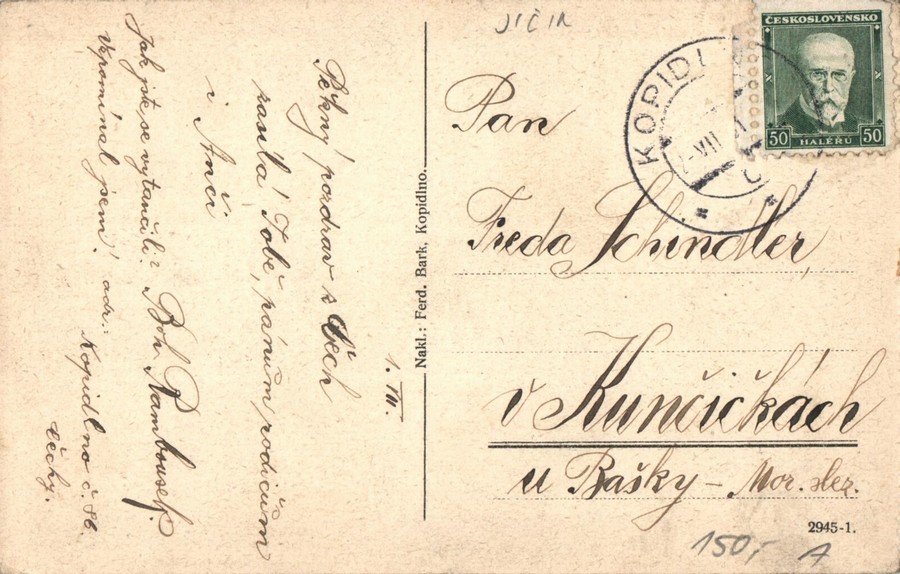 JIČÍN
Pěkný pozdrav s Čech
zasílá Tobě, pánům rodičům
i Anči
Boh.
Jak jste se vytančili?
Vzpomínal jsem! adr.: Kopidlno č. 86.
Čechy.
1. VII.
Nakl.: Ferd. Bark, Kopidlno.
ČESKOSLOVENSKO
50 HALÉŘŮ 50
KOPIDL
VII
Pan
Freda Schindler,
v Kunčičkách
u Bašky – Mor. slez.
2945-1.
150,- A